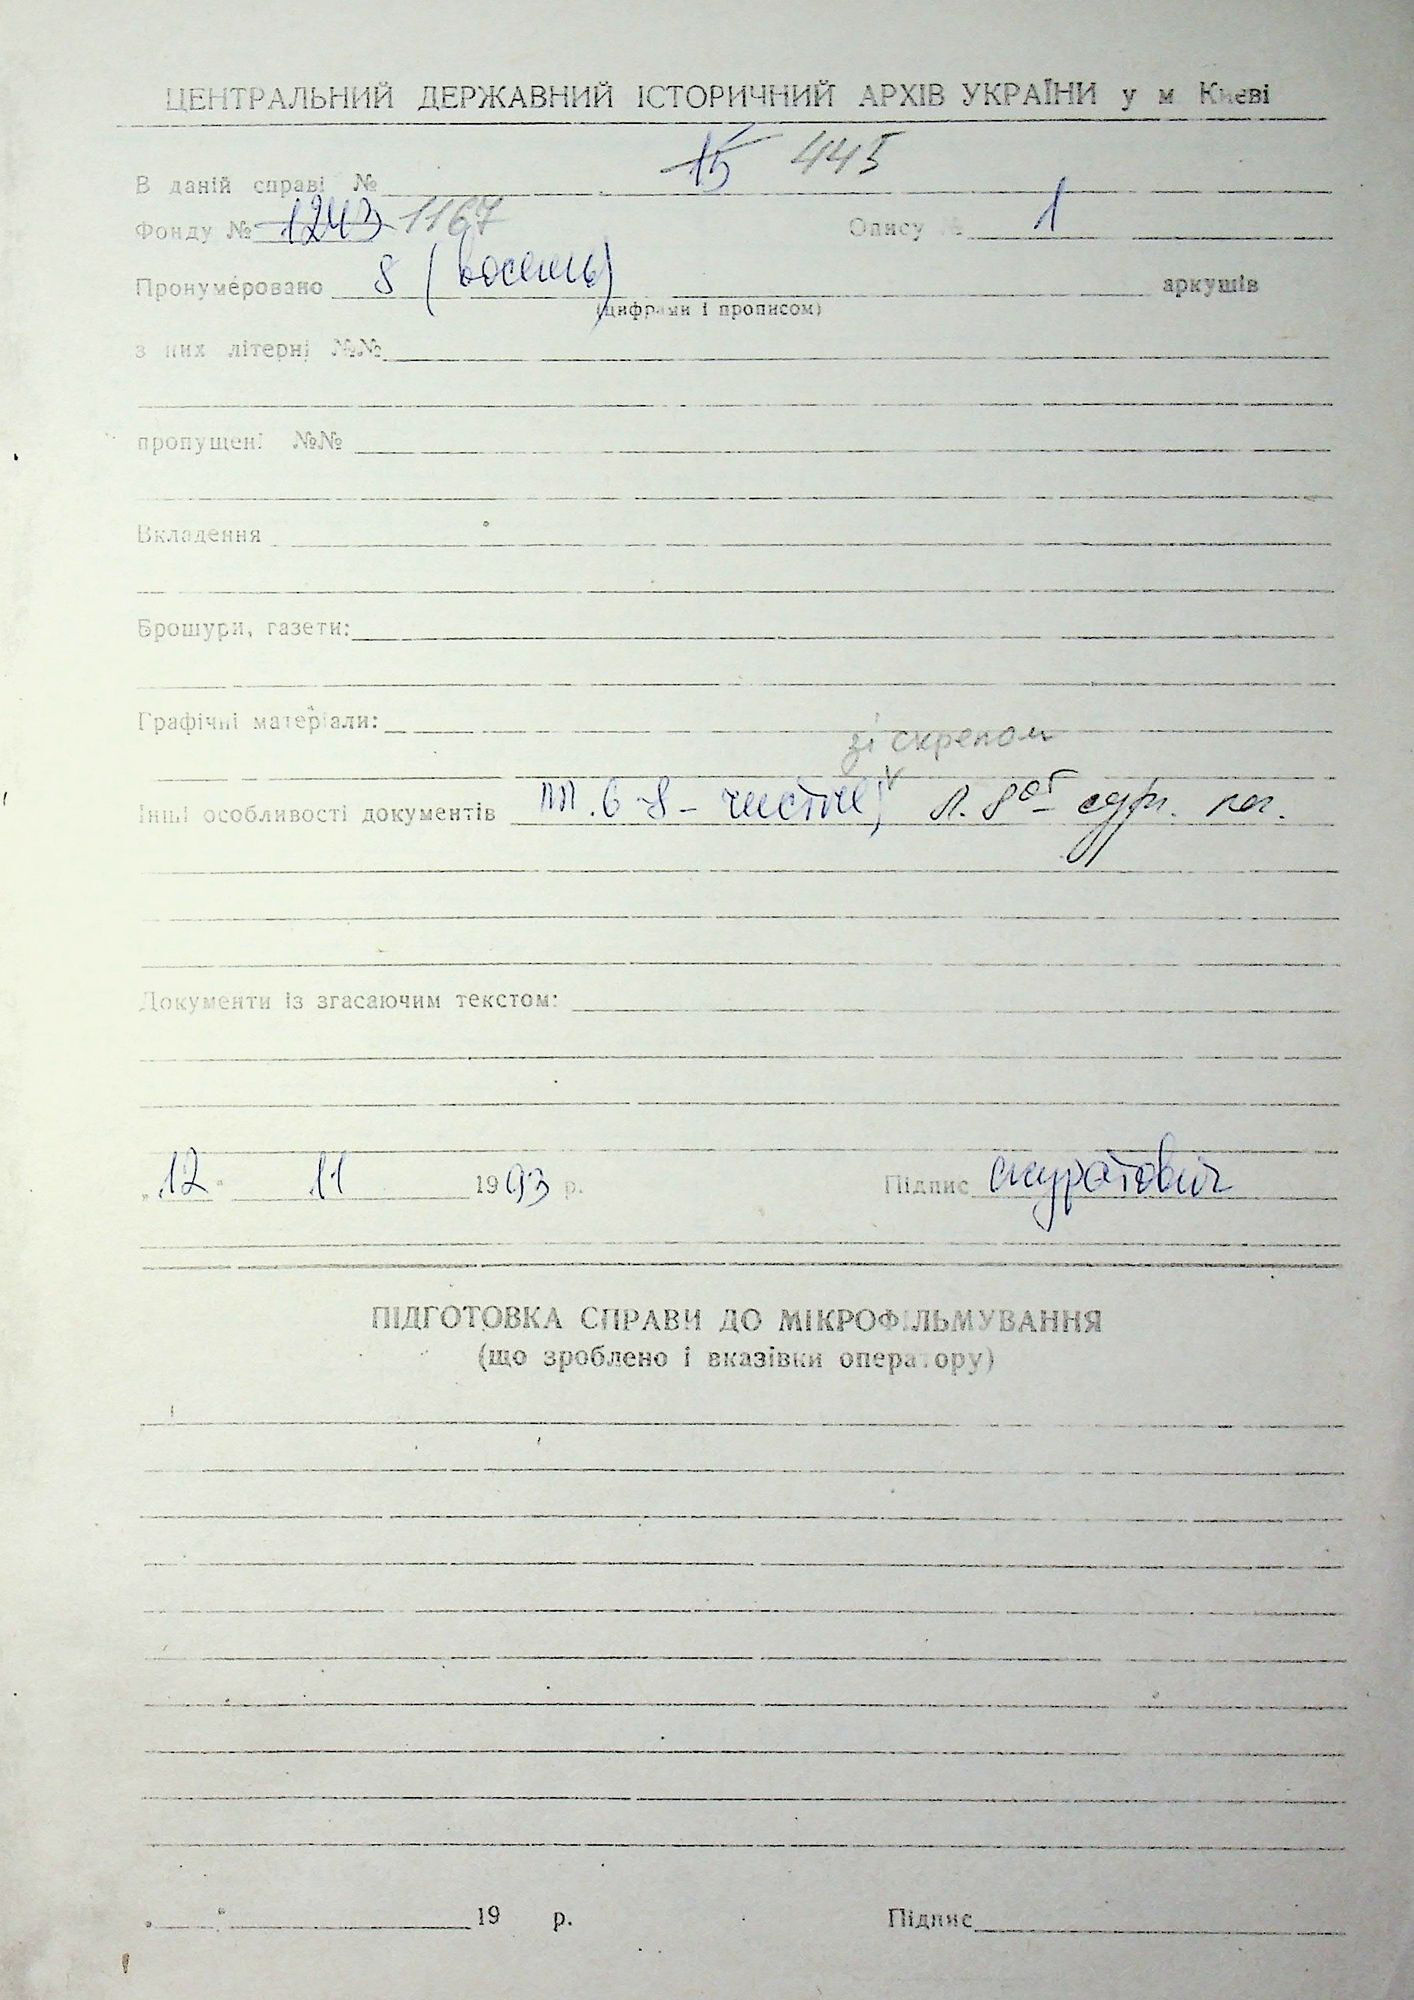 ЦЕНТРАЛЬНИЙ ДЕРЖАВНИЙ ІСТОРИЧНИЙ АРХІВ УКРАЇНИ у м Києві
В даній справі № 15 445
Фонду № 1243 1167 Опису № 1
Пронумеровано 8 (восемь) аркушів
(цифрами і прописом)
з них літерні №№
пропущені №№
Вкладення
Брошури, газети:
Графічні матеріали:
зі скрепом
Інші особливості документів лл. 6-8 - чистые, л. 8об-
Документи із згасаючим текстом:
„12“ 11 1993 р. Підпис Скуратович
ПІДГОТОВКА СПРАВИ ДО МІКРОФІЛЬМУВАННЯ
(що зроблено і вказівки оператору)
„ “ 19 р. Підпис